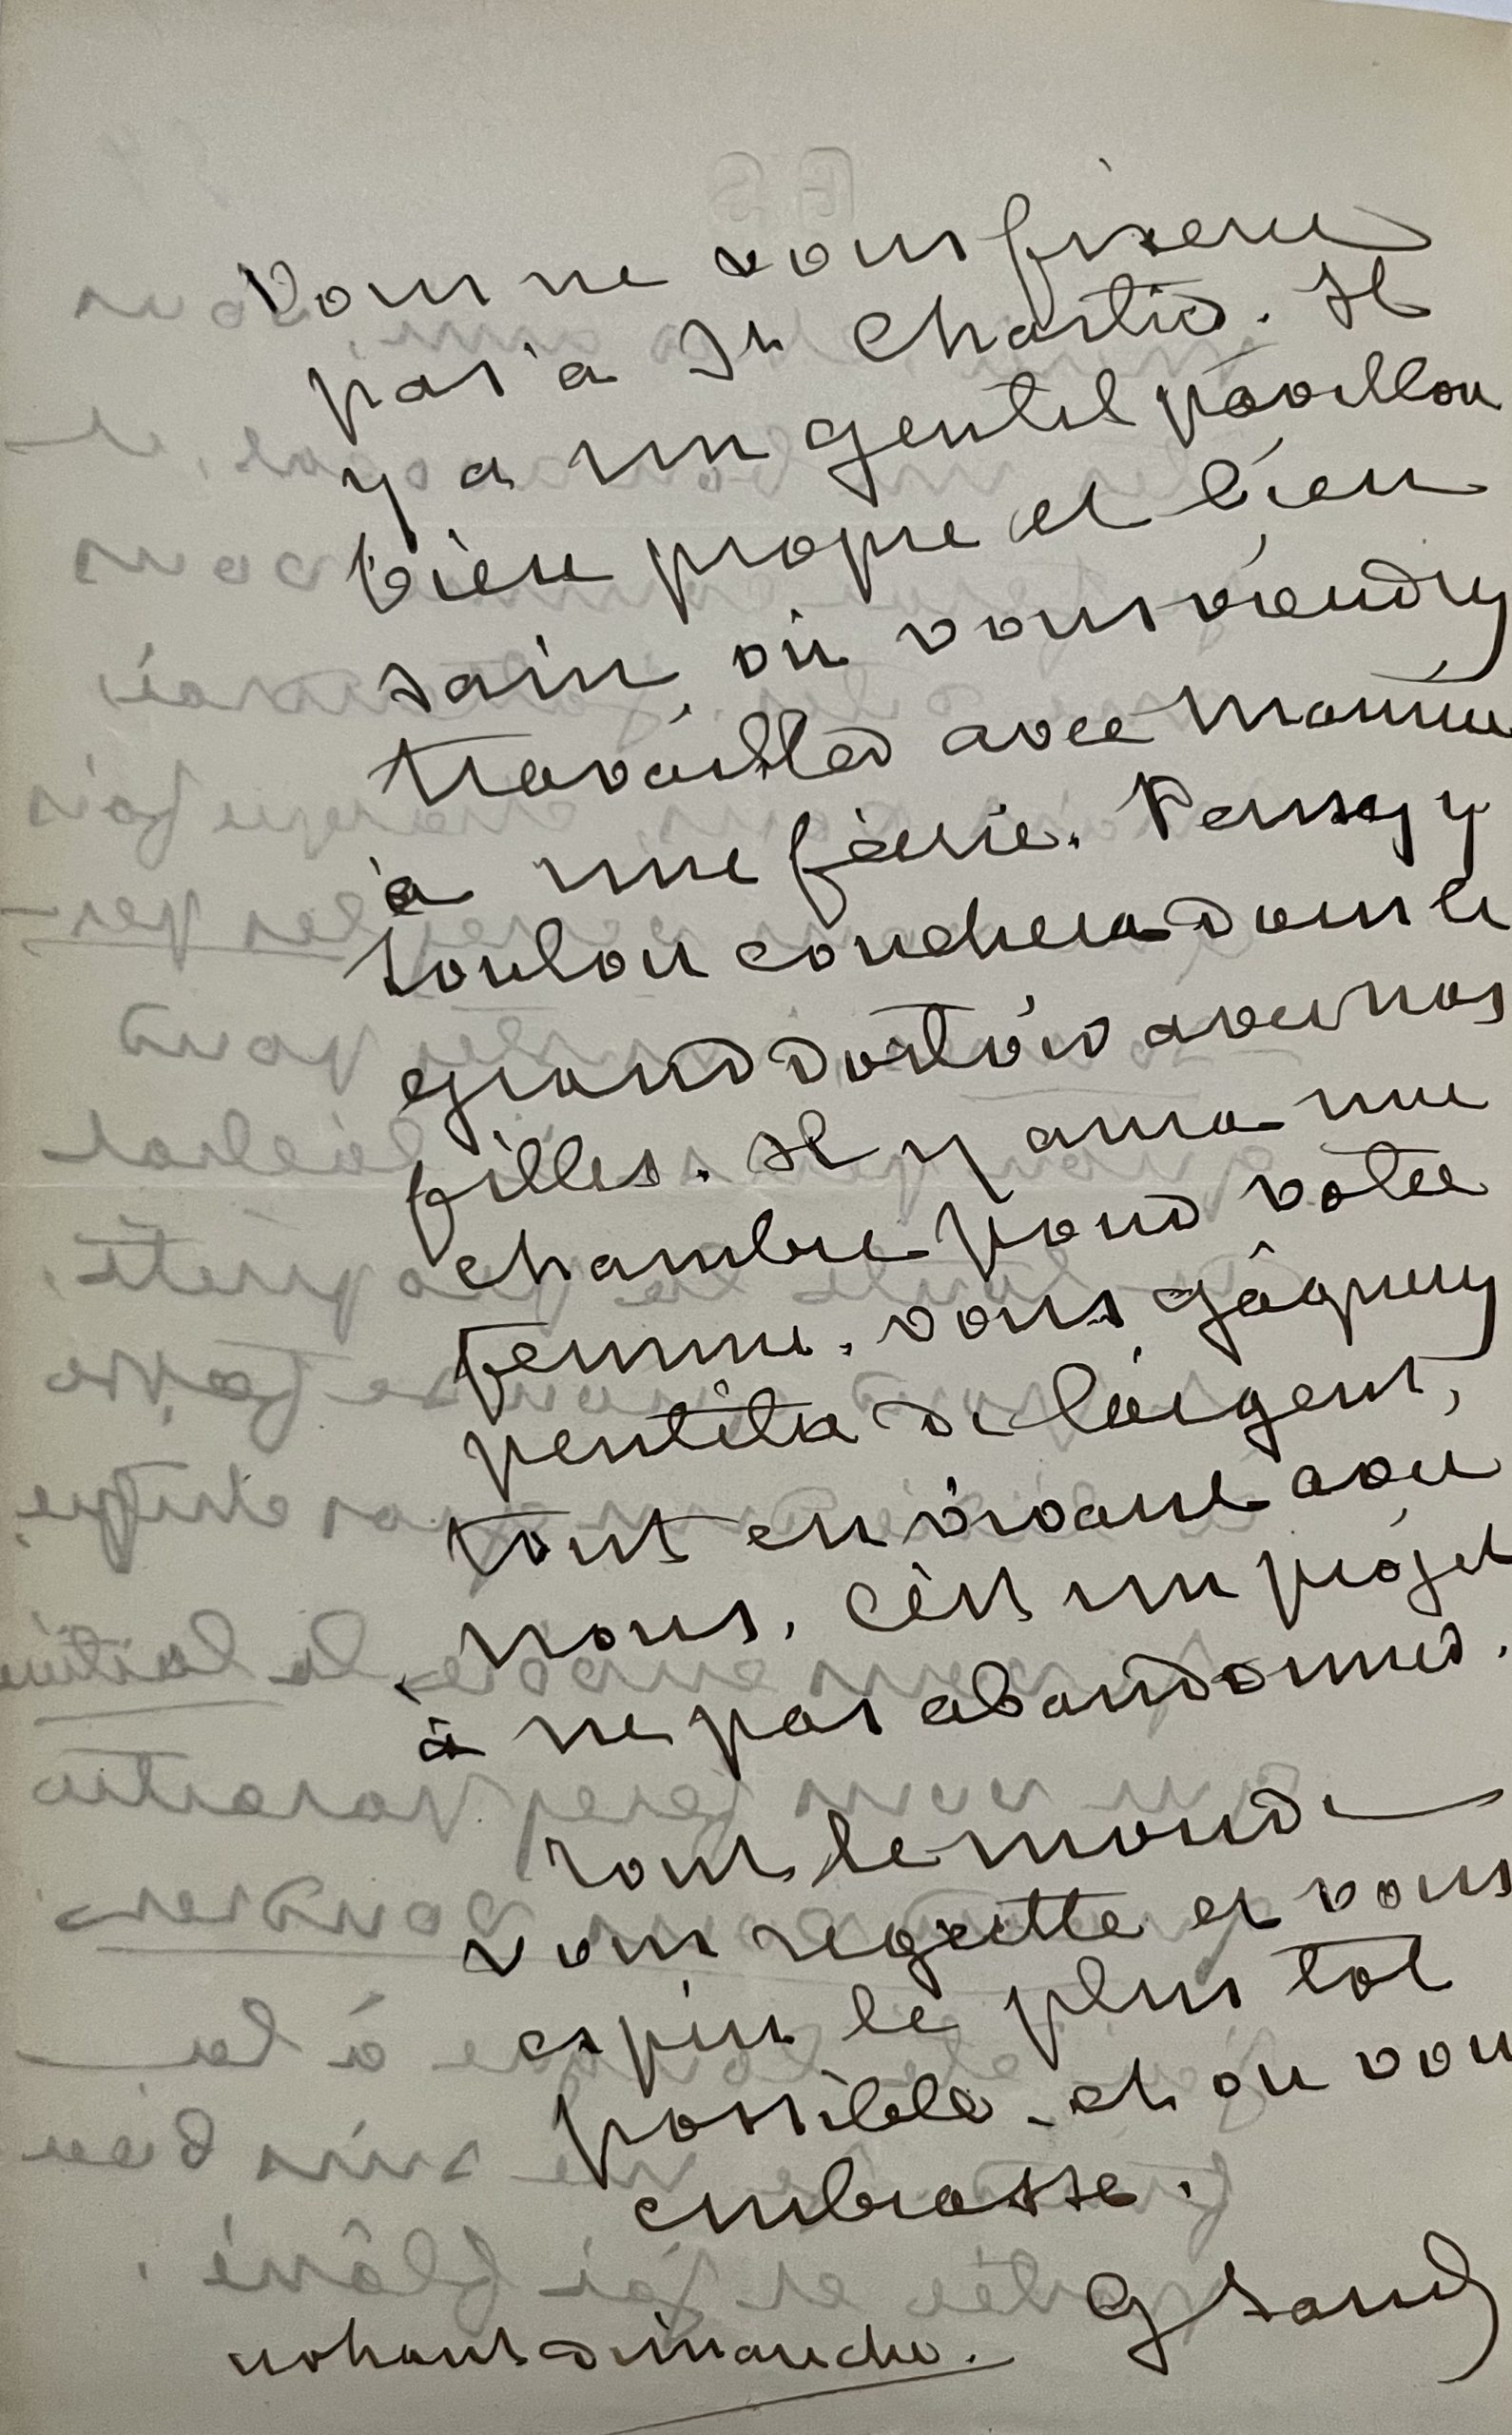 Vous ne vous fixerez
pas à St Chartier. Il
y a un gentil pavillon
bien propre et bien
sain, où vous viendrez
travailler avec Maurice
à une féerie. Pensez y
Loulou couchera dans le
grand dortoir avec nos
filles. Il y aura une
chambre pour votre
femme. vous gagnerez
peutêtre de l'argent,
tout en vivant avec
nous. C'est un projet
à ne pas abandonner.
Tout le monde
vous regrette et vous
espère le plus tot
possible. et on vous
embrasse.
G Sand
nohant dimanche.